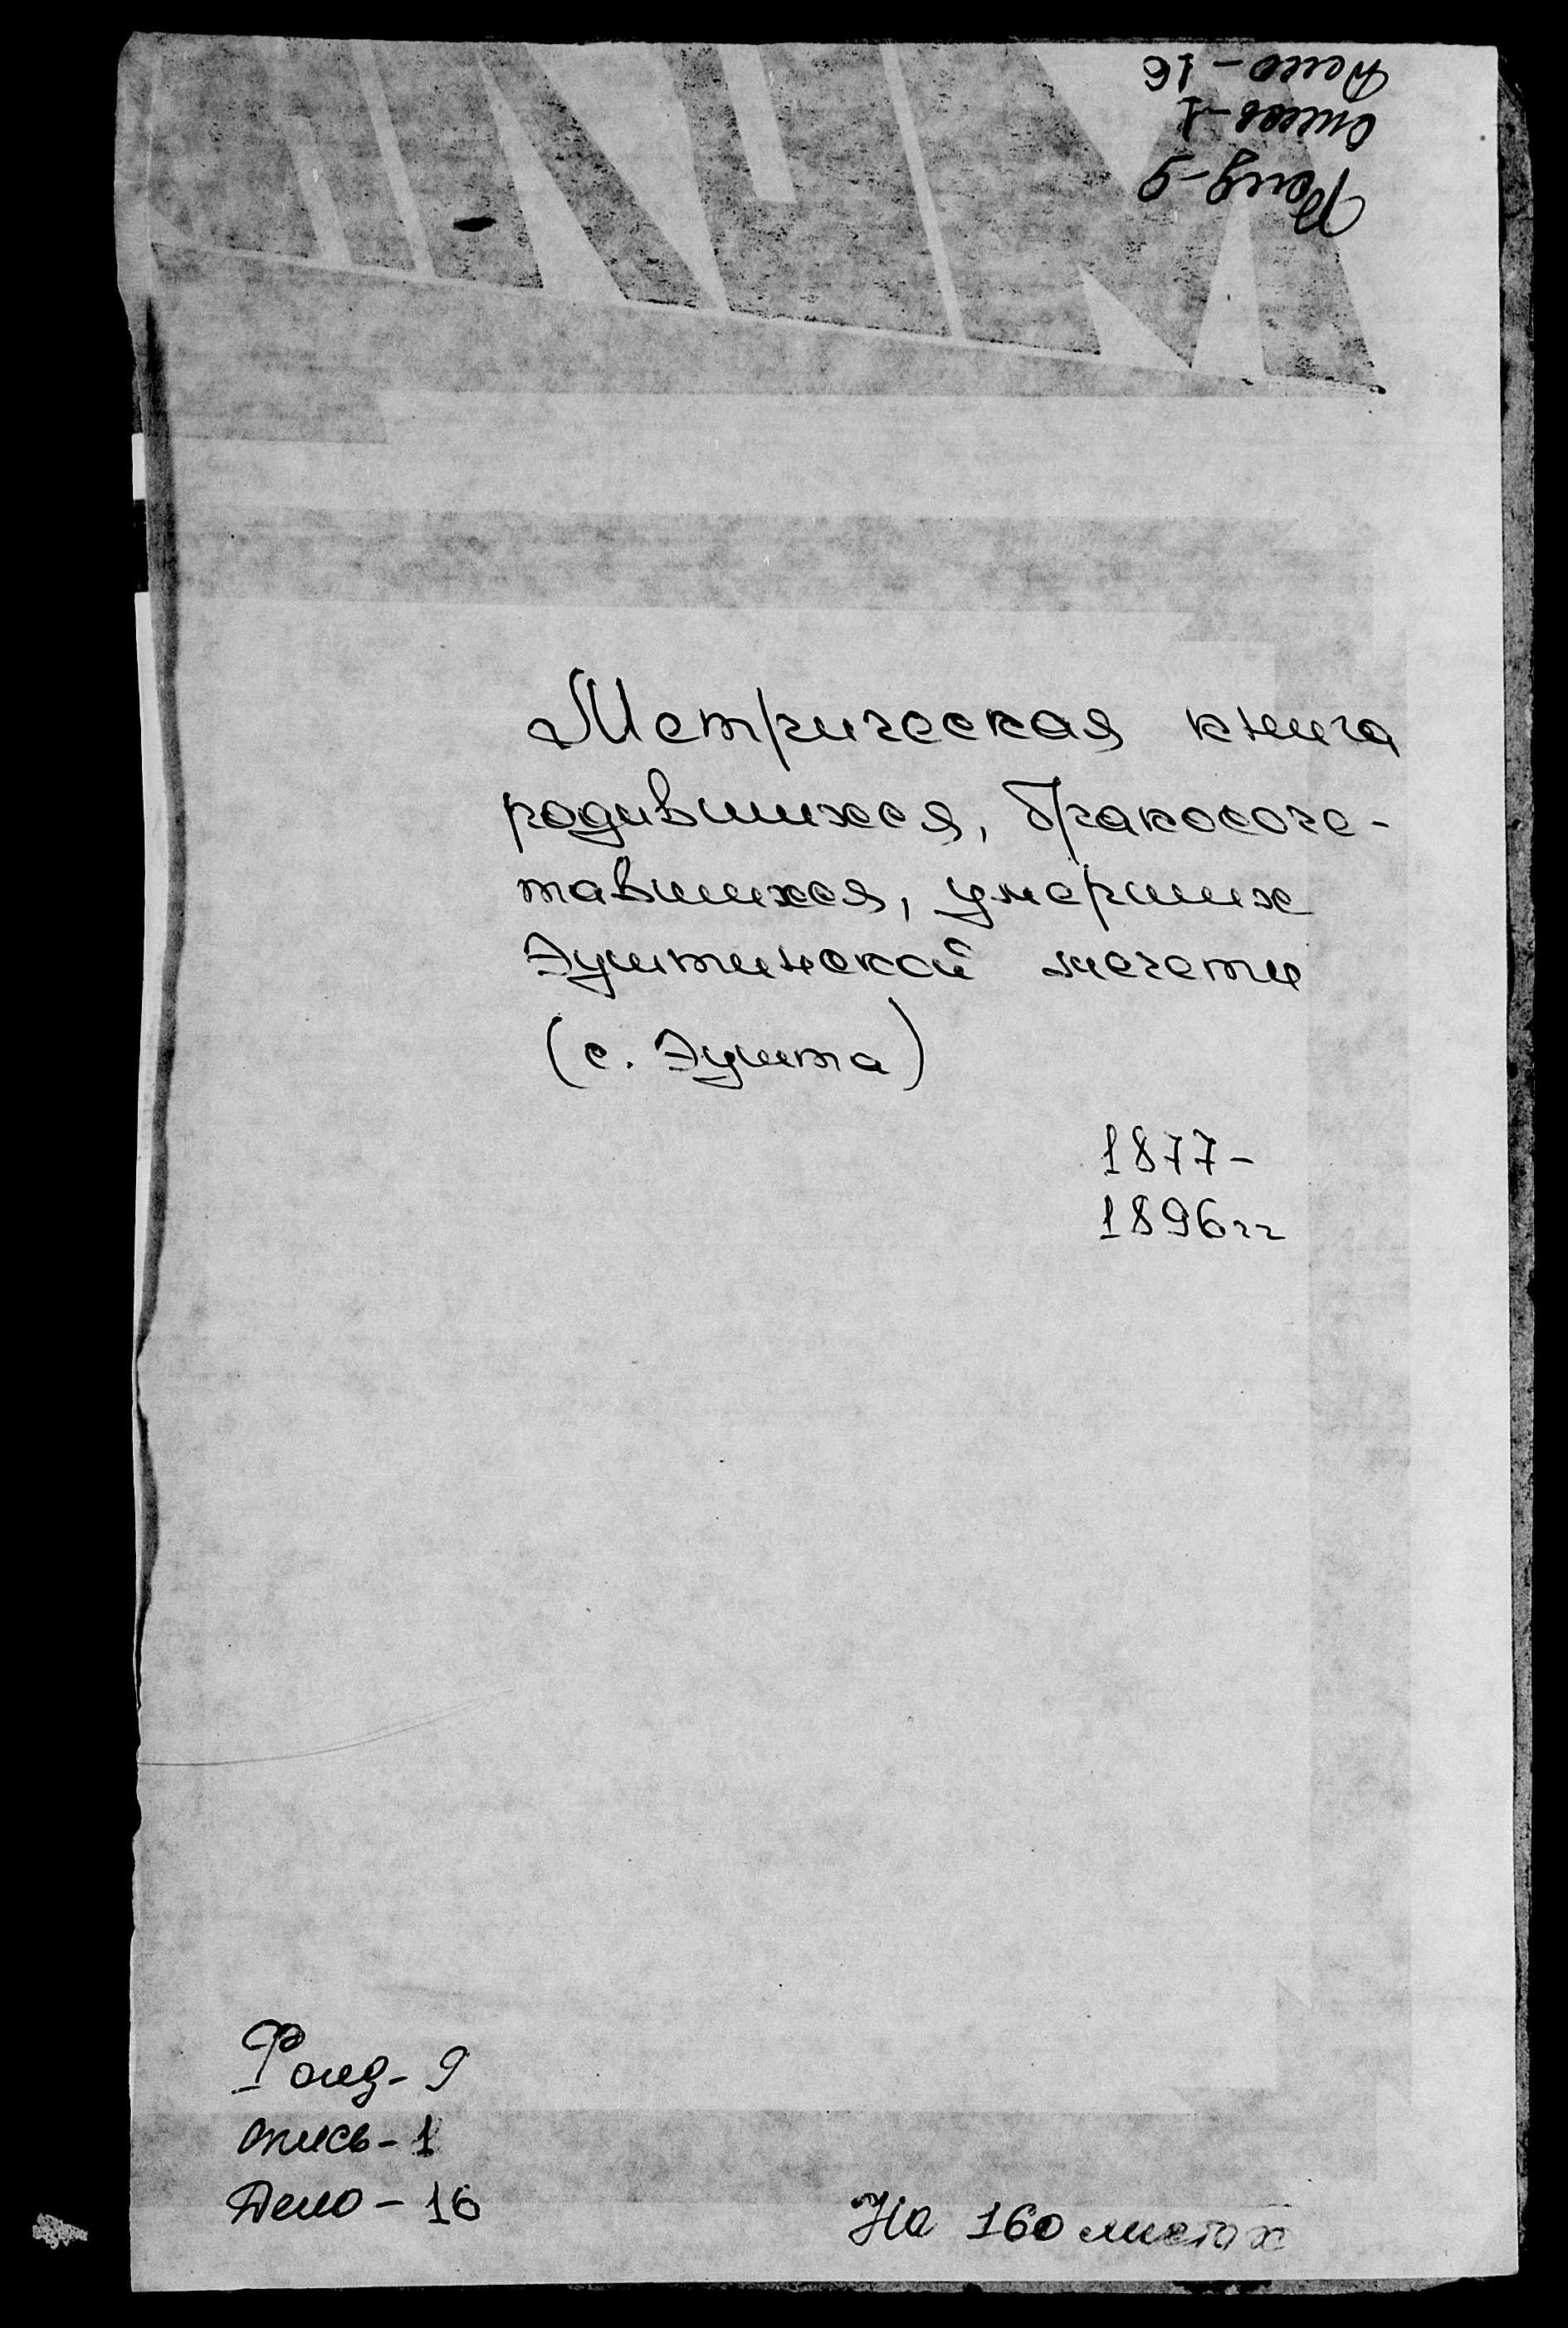 Фонд-9
опись-1
Дело-16
Метрическая книга
родившихся, бракосоче-
тавшихся, умерших
Эуштинской мечети
(с. Эушта)
1877-
1896гг
Фонд-9
опись-1
Дело-16
На 160 листах